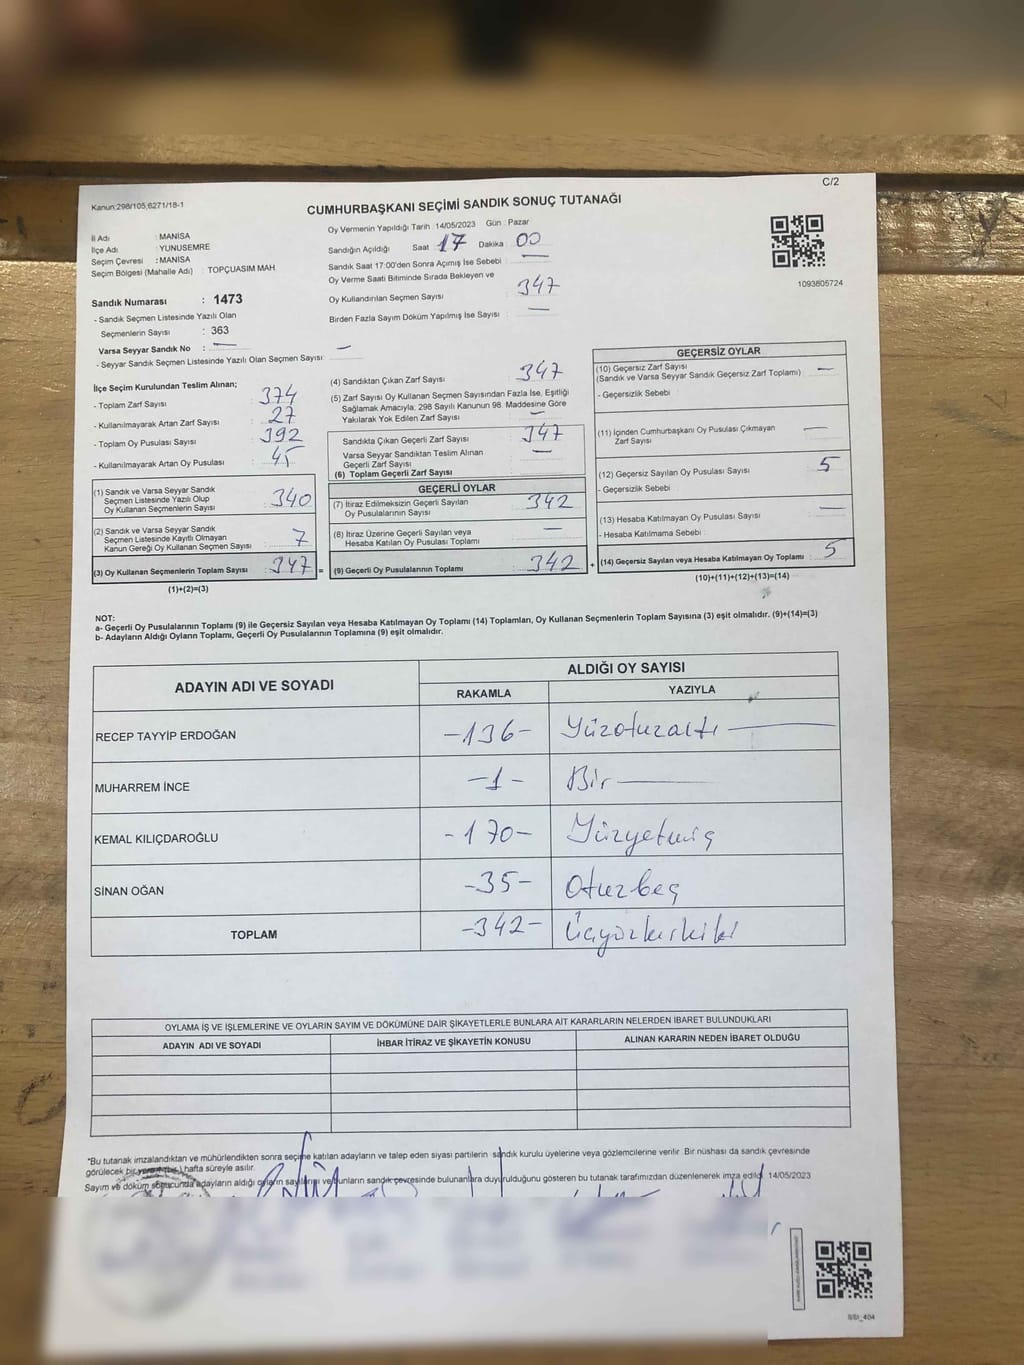 C/2
Kanun:298/105,6271/18-1
CUMHURBAŞKANI SEÇİMİ SANDIK SONUÇ TUTANAĞI
İl Adı : MANİSA
İlçe Adı : YUNUSEMRE
Seçim Çevresi : MANİSA
Seçim Bölgesi (Mahalle Adı) : TOPÇUASIM MAH.
Oy Vermenin Yapıldığı Tarih :14/05/2023 Gün : Pazar
Sandığın Açıldığı Saat 17 Dakika 00
Sandık Saat 17:00'den Sonra Açımış İse Sebebi : —
Oy Verme Saati Bitiminde Sırada Bekleyen ve
Oy Kullandırılan Seçmen Sayısı : 347
Birden Fazla Sayım Döküm Yapılmış İse Sayısı : —
1093805724
Sandık Numarası : 1473
- Sandık Seçmen Listesinde Yazılı Olan
Seçmenlerin Sayısı : 363
Varsa Seyyar Sandık No : —
- Seyyar Sandık Seçmen Listesinde Yazılı Olan Seçmen Sayısı: —
İlçe Seçim Kurulundan Teslim Alınan;
- Toplam Zarf Sayısı : 374
- Kullanılmayarak Artan Zarf Sayısı : 27
- Toplam Oy Pusulası Sayısı : 392
- Kullanılmayarak Artan Oy Pusulası : 45
(1) Sandık ve Varsa Seyyar Sandık
Seçmen Listesinde Yazılı Olup
Oy Kullanan Seçmenlerin Sayısı : 340
(2) Sandık ve Varsa Seyyar Sandık
Seçmen Listesinde Kayıtlı Olmayan
Kanun Gereği Oy Kullanan Seçmen Sayısı : 7
(3) Oy Kullanan Seçmenlerin Toplam Sayısı : 347 =
(1)+(2)=(3)
(4) Sandıktan Çıkan Zarf Sayısı : 347
(5) Zarf Sayısı Oy Kullanan Seçmen Sayısından Fazla İse, Eşitliği
Sağlamak Amacıyla; 298 Sayılı Kanunun 98. Maddesine Göre
Yakılarak Yok Edilen Zarf Sayısı : —
Sandıkta Çıkan Geçerli Zarf Sayısı : 347
Varsa Seyyar Sandıktan Teslim Alınan
Geçerli Zarf Sayısı : —
(6) Toplam Geçerli Zarf Sayısı
GEÇERLİ OYLAR
(7) İtiraz Edilmeksizin Geçerli Sayılan
Oy Pusulalarının Sayısı : 342
(8) İtiraz Üzerine Geçerli Sayılan veya
Hesaba Katılan Oy Pusulası Toplamı : —
(9) Geçerli Oy Pusulalarının Toplamı : 342 +
GEÇERSİZ OYLAR
(10) Geçersiz Zarf Sayısı : —
(Sandık ve Varsa Seyyar Sandık Geçersiz Zarf Toplamı)
- Geçersizlik Sebebi :
(11) İçinden Cumhurbaşkanı Oy Pusulası Çıkmayan
Zarf Sayısı : —
(12) Geçersiz Sayılan Oy Pusulası Sayısı : 5
- Geçersizlik Sebebi :
(13) Hesaba Katılmayan Oy Pusulası Sayısı : —
- Hesaba Katılmama Sebebi :
(14) Geçersiz Sayılan veya Hesaba Katılmayan Oy Toplamı : 5
(10)+(11)+(12)+(13)=(14)
NOT:
a- Geçerli Oy Pusulalarının Toplamı (9) ile Geçersiz Sayılan veya Hesaba Katılmayan Oy Toplamı (14) Toplamları, Oy Kullanan Seçmenlerin Toplam Sayısına (3) eşit olmalıdır. (9)+(14)=(3)
b- Adayların Aldığı Oyların Toplamı, Geçerli Oy Pusulalarının Toplamına (9) eşit olmalıdır.
ADAYIN ADI VE SOYADI
ALDIĞI OY SAYISI
RAKAMLA YAZIYLA
RECEP TAYYİP ERDOĞAN -136- Yüzotuzaltı
MUHARREM İNCE -1- Bir
KEMAL KILIÇDAROĞLU -170- Yüzyetmiş
SİNAN OĞAN -35- Otuzbeş
TOPLAM -342- Üçyüzkırkiki
OYLAMA İŞ VE İŞLEMLERİNE VE OYLARIN SAYIM VE DÖKÜMÜNE DAİR ŞİKAYETLERLE BUNLARA AİT KARARLARIN NELERDEN İBARET BULUNDUKLARI
ADAYIN ADI VE SOYADI İHBAR İTİRAZ VE ŞİKAYETİN KONUSU ALINAN KARARIN NEDEN İBARET OLDUĞU
*Bu tutanak imzalandıktan ve mühürlendikten sonra seçime katılan adayların ve talep eden siyasi partilerin sandık kurulu üyelerine veya gözlemcilerine verilir. Bir nüshası da sandık çevresinde
görülecek bir yere (bir) hafta süreyle asılır.
Sayım ve döküm sonucunda adayların aldığı oyların sayılarını ve bunların sandık çevresinde bulunanlara duyurulduğunu gösteren bu tutanak tarafımızdan düzenlenerek imza edildi. 14/05/2023